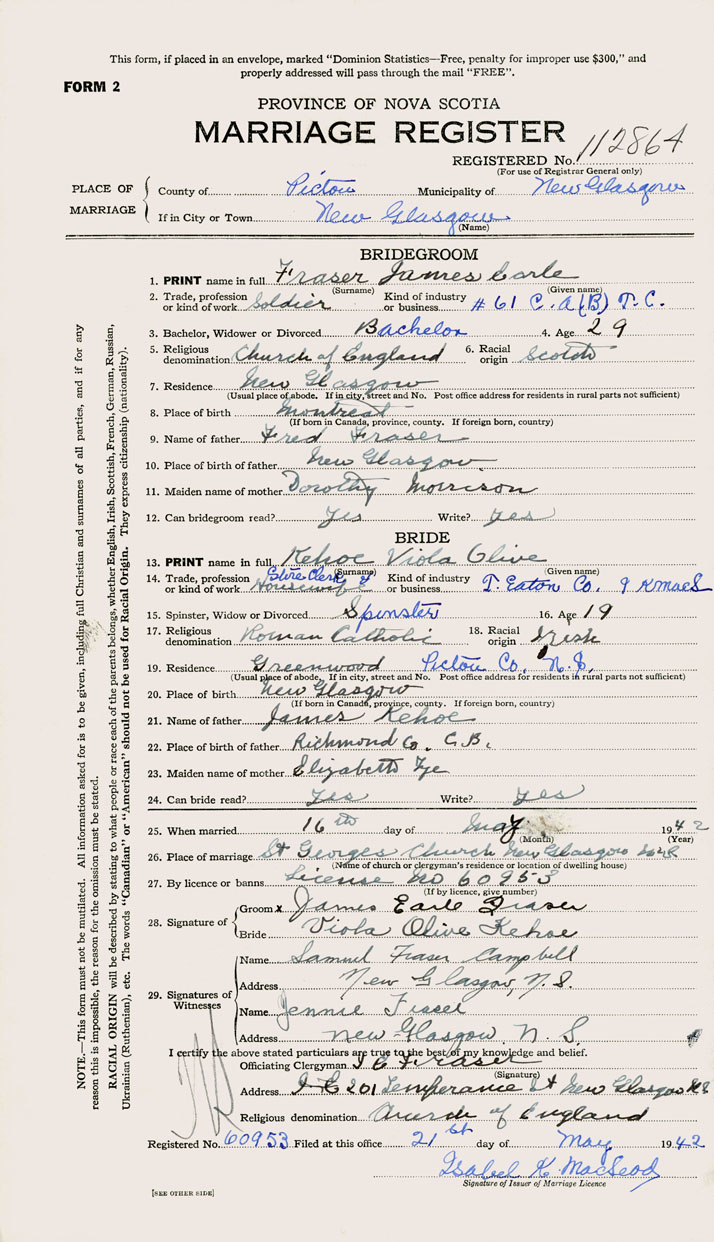 This form, if placed in an envelope, marked "Dominion Statistics—Free, penalty for improper use $300," and
properly addressed will pass through the mail "FREE".
FORM 2
PROVINCE OF NOVA SCOTIA
MARRIAGE REGISTER
REGISTERED No. 112864
(For use of Registrar General only)
PLACE OF MARRIAGE
County of Pictou Municipality of New Glasgow
If in City or Town New Glasgow
(Name)
BRIDEGROOM
1. PRINT name in full Fraser James Earle
(Surname) (Given name)
2. Trade, profession or kind of work Soldier Kind of industry or business # 61 C. A (B) T. C.
3. Bachelor, Widower or Divorced Bachelor 4. Age 29
5. Religious denomination Church of England 6. Racial origin Scotch
7. Residence New Glasgow
(Usual place of abode. If in city, street and No. Post office address for residents in rural parts not sufficient)
8. Place of birth Montreal
(If born in Canada, province, county. If foreign born, country)
9. Name of father Fred Fraser
10. Place of birth of father New Glasgow
11. Maiden name of mother Dorothy Morrison
12. Can bridegroom read? Yes Write? Yes
BRIDE
13. PRINT name in full Kehoe Viola Olive
(Surname) (Given name)
14. Trade, profession or kind of work Store Clerk & Housewife Kind of industry or business T. Eaton Co.
15. Spinster, Widow or Divorced Spinster 16. Age 19
17. Religious denomination Roman Catholic 18. Racial origin Irish
19. Residence Greenwood Pictou Co. N. S.
(Usual place of abode. If in city, street and No. Post office address for residents in rural parts not sufficient)
20. Place of birth New Glasgow
(If born in Canada, province, county. If foreign born, country)
21. Name of father James Kehoe
22. Place of birth of father Richmond Co. C. B.
23. Maiden name of mother Elizabeth
24. Can bride read? Yes Write? Yes
25. When married 16th day of May 1942
(Month) (Year)
26. Place of marriage St Georges Church New Glasgow
(Name of church or clergyman's residence or location of dwelling house)
27. By licence or banns License No 60953
(If by licence, give number)
28. Signature of
Groom x James Earle Fraser
Bride Viola Olive Kehoe
29. Signatures of Witnesses
Name Samuel Fraser Campbell
Address New Glasgow, N. S.
Name Jennie
Address New Glasgow N. S.
I certify the above stated particulars are true to the best of my knowledge and belief.
Officiating Clergyman Fraser
(Signature)
Address 201 Temperance St New Glasgow N S
Religious denomination Church of England
Registered No. 60953 Filed at this office 21st day of May 1942
Isabel K. MacLeod
Signature of Issuer of Marriage Licence
[SEE OTHER SIDE]
NOTE.—This form must not be mutilated. All information asked for is to be given, including full Christian and surnames of all parties, and if for any
reason this is impossible, the reason for the omission must be stated.
RACIAL ORIGIN will be described by stating to what people or race each of the parents belongs, whether English, Irish, Scottish, French, German, Russian,
Ukrainian (Ruthenian), etc. The words "Canadian" or "American" should not be used for Racial Origin. They express citizenship (nationality).